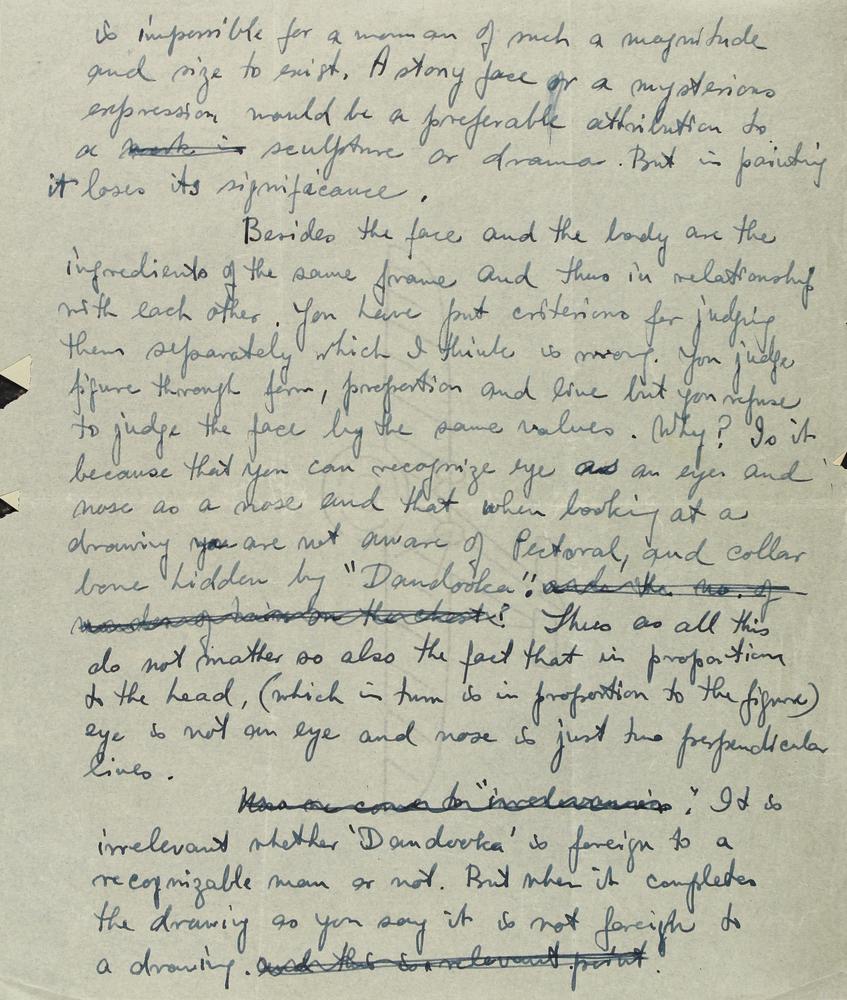 is impossible for a woman of such a magnitude
and size to exist. A stony face or a mysterious
expression would be a preferable attribution to
a work in sculpture or drama. But in painting
it loses its significance.
Besides the face and the body are the
ingredients of the same frame and thus in relationship
with each other. You have put criterions for judging
them separately which I think is wrong. You judge
figure through form, proportion and line but you refuse
to judge the face by the same values. Why? Is it
because that you can recognize eye as an eye and
nose as a nose and that when looking at a
drawing you are not aware of Pectoral, and collar
bone hidden by "Dandooka". and the no. of
on the chest? Thus as all this
do not matter so also the fact that in proportion
to the head, (which in turn is in proportion to the figure)
eye is not an eye and nose is just two perpendicular
lines.
Now we come to "irrelevancies". It is
irrelevant whether 'Dandooka' is foreign to a
recognizable man or not. But when it completes
the drawing as you say it is not foreign to
a drawing. and this is relevant point.